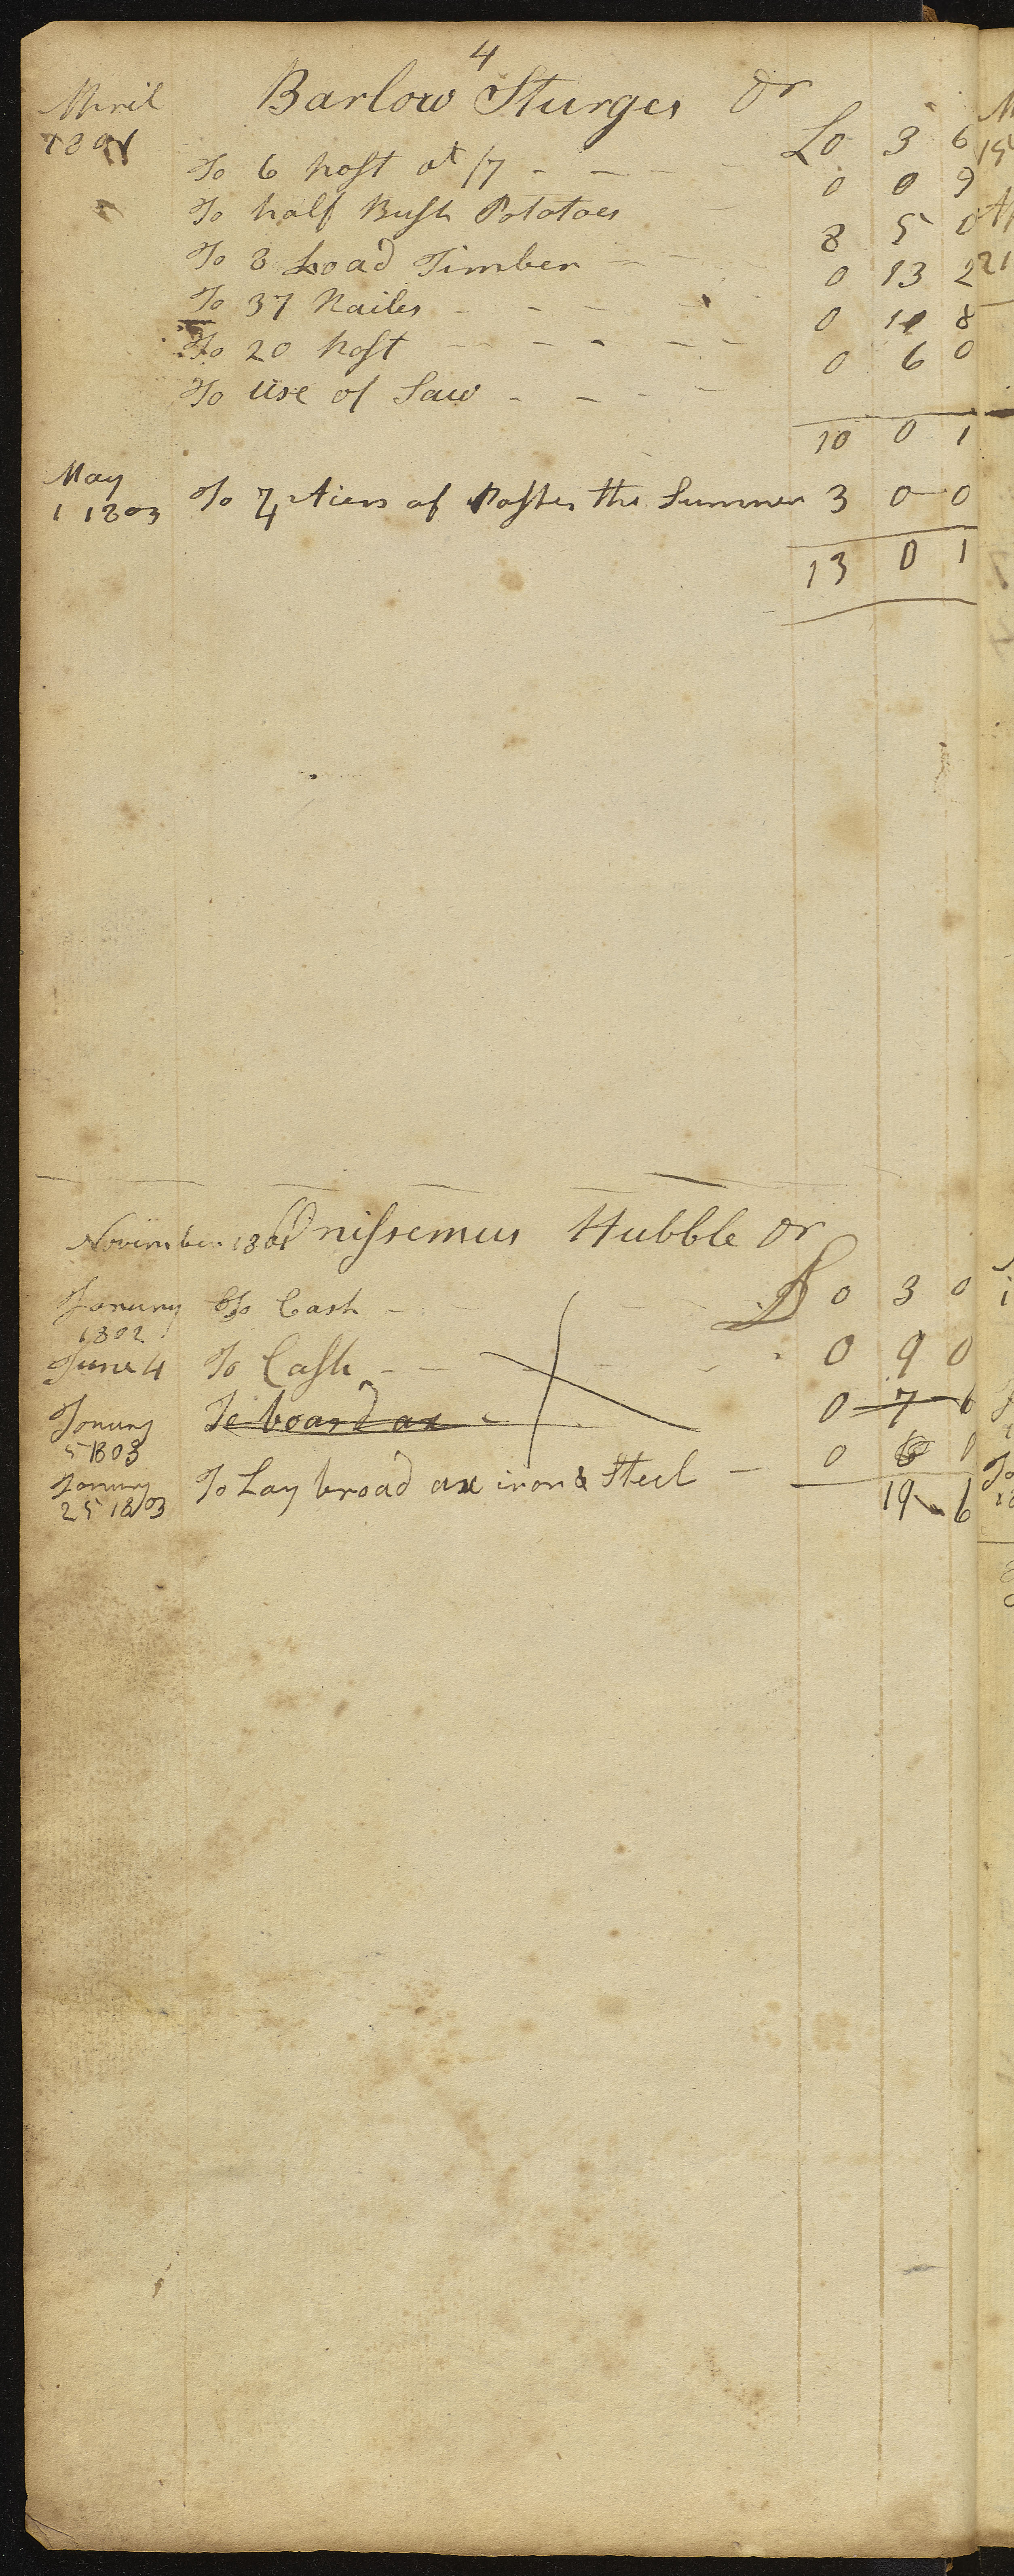 4
April Barlow Sturges Dr
1801
To 6 post at /7 - - - £0 3 6
To half Bush Potatoes - 0 0 9
To 8 Load Timber - - 8 5 0
To 37 Railes - - - - 0 13 2
To 20 post - - - - - 0 11 8
To use of Saw - - - 0 6 0
10 0 1
May
1 1803 To 7 of Paster the Summer 3 0 0
13 0 1
November 1801 Onissemus Hubble Dr
Janury To Cash - £ 0 3 0
1802
June 4 To Cash - - 0 9 0
Janury To board ax 0 7 6
5 1803
Janury To Lay broad ax iron & Steel - 0 6 0
25 1803
19 6